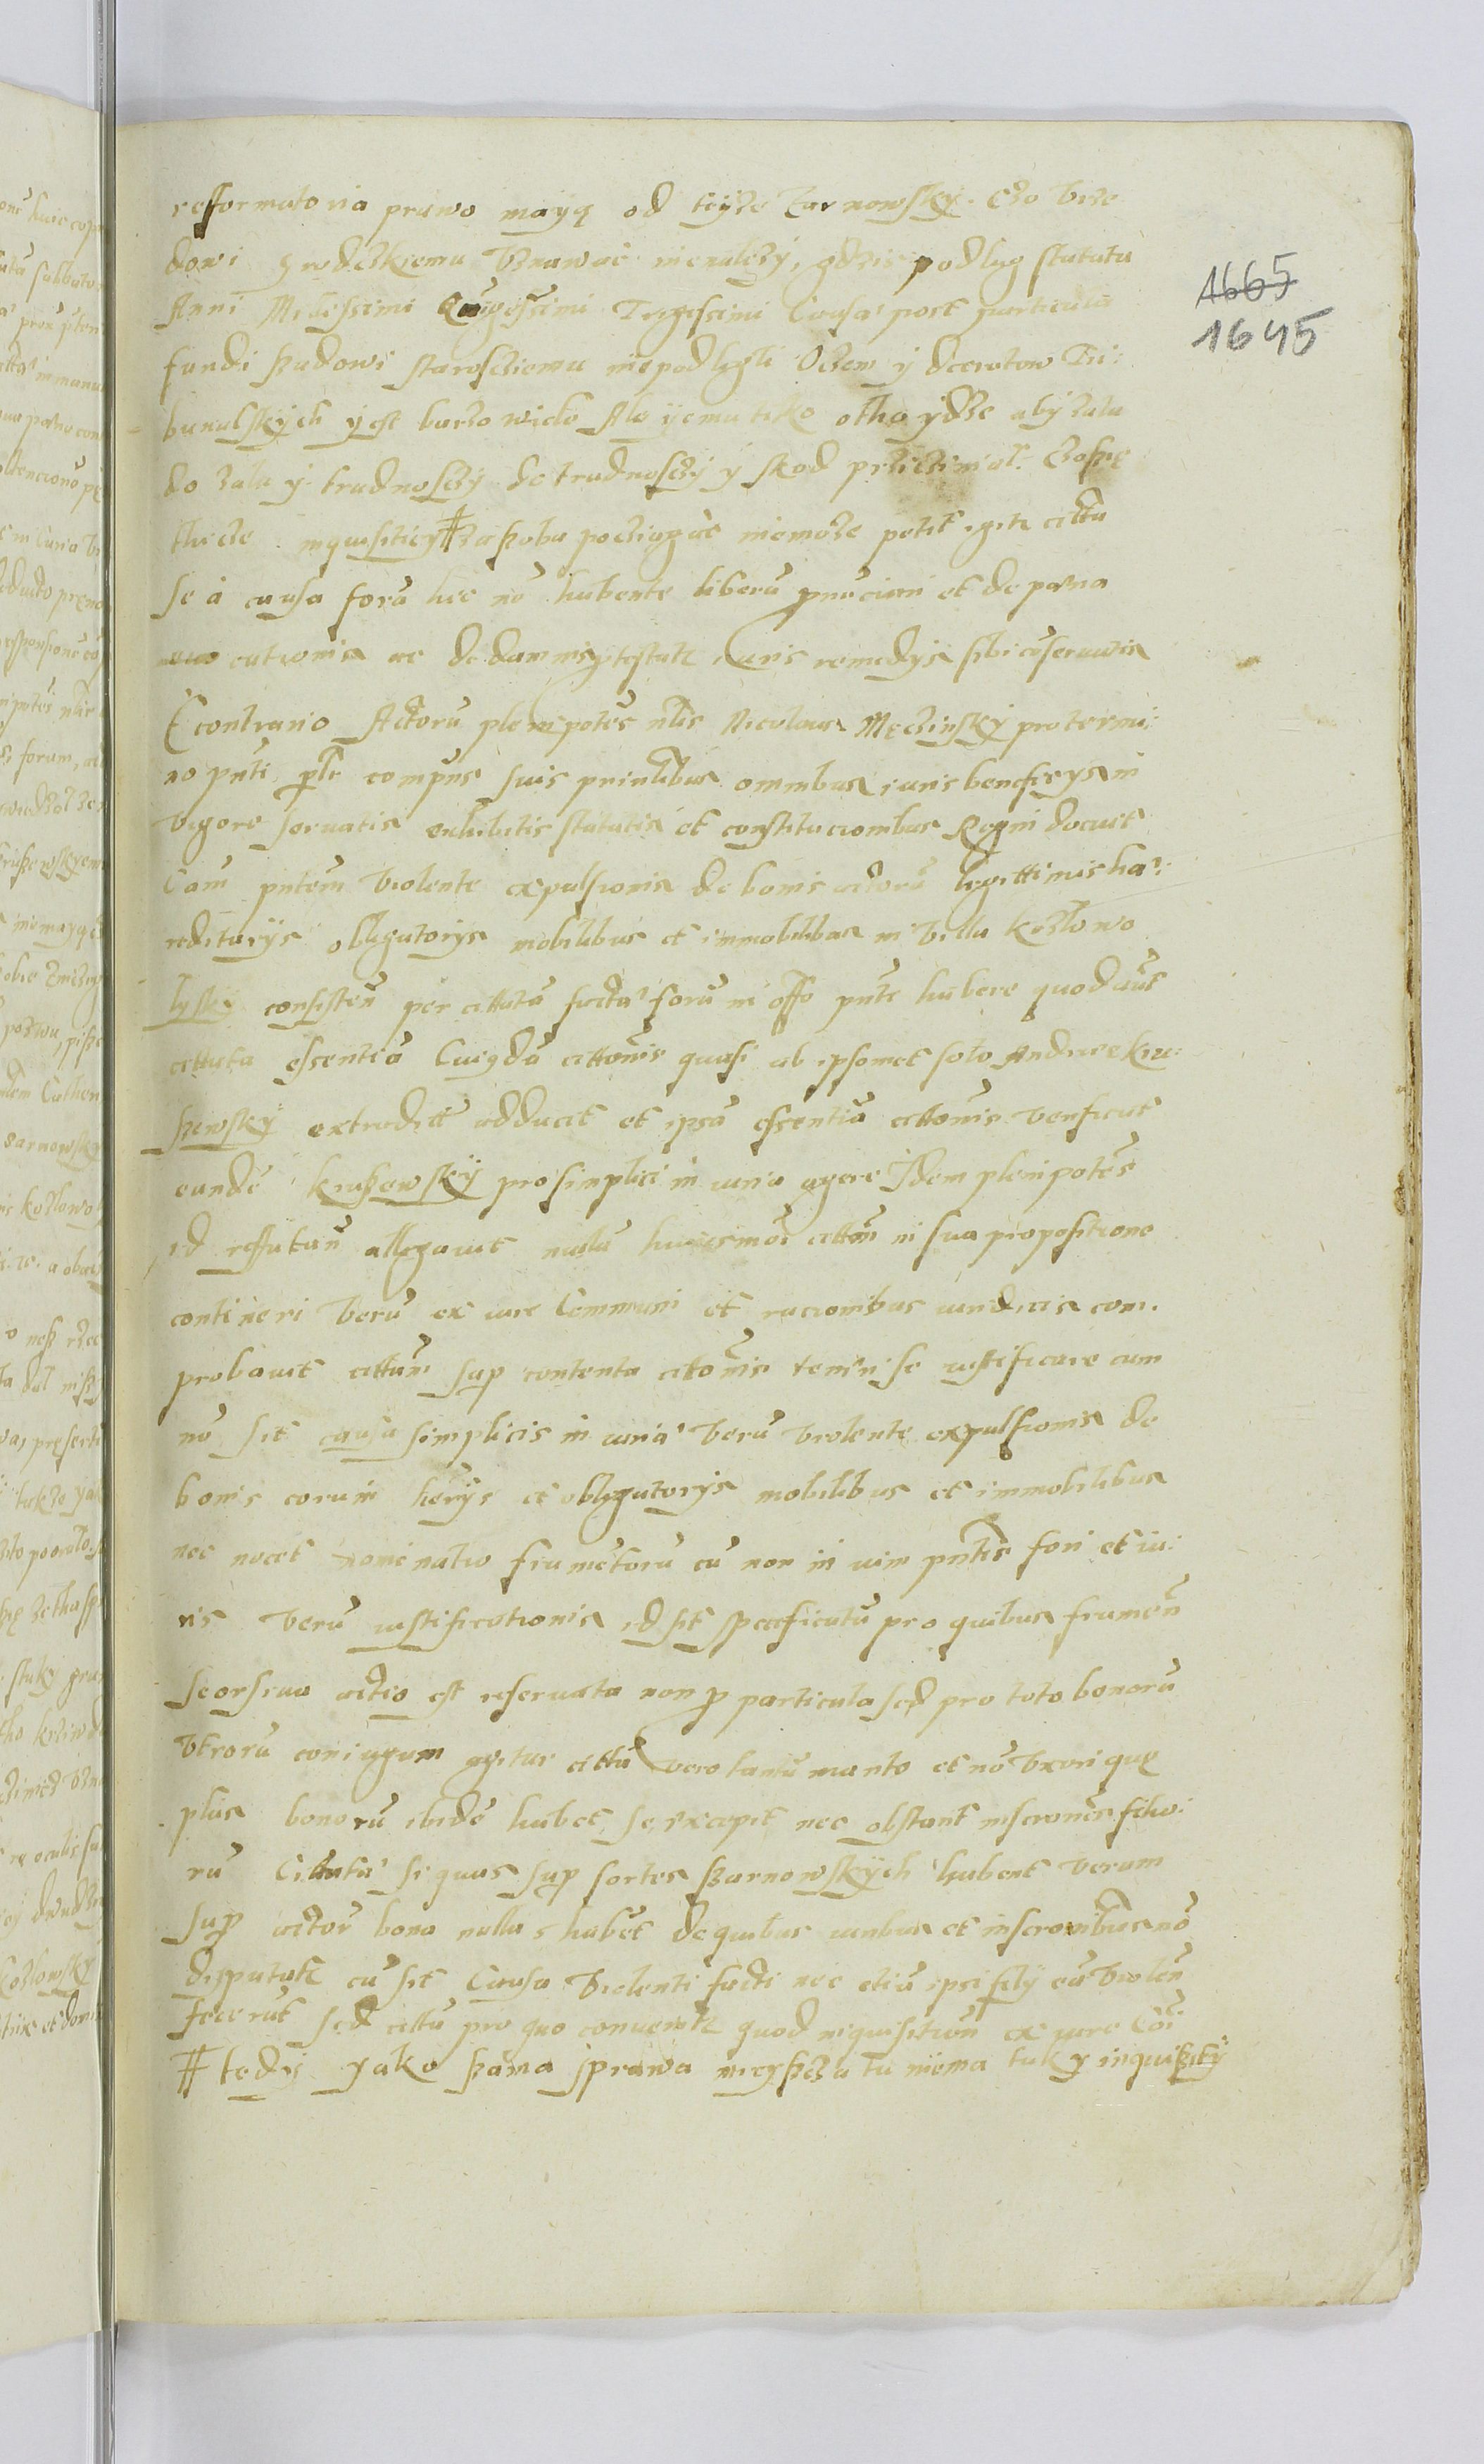 refformatoria prawo mayą od teyze Tarnowsky. Czo Vrze
dowi grodczkiemu Vznawac nienalezy, gdzie podlug statutu
Anni Millessimi Quīgessimi Trigesimi Causa post particula
fundi szudowi staroscziemu niepodlegli Oczem y decretow Tri:
bunalskych yest barzo wiele Ale yemu tilko otho ydze aby zalu
do zalu y trudnosczy do trudnosczy y skod prziczinial. Czoszie
thicze inquisiciey # za szoba pocziagac niemoze petit igitr cittu
se á causa foru hic nō habente liberū pnūciari et de pœna
cationis ac de damnis ptestatr Iuris remedys sibi cōseruatis
E contrario Actorū plenipotēs nlis Nicolaus Męczinsky pro termi:
no pnti plr compns suis prinlibus omnibus iuris beneficys in
vigore seruatis exhibitis statutis et constitucionibus Regni docuit
Cām pntem violente expulsionis de bonis actorū legittimis hæ:
reditarys obligatorys mobilibus et immobilibus in villa Kozlowo
lysky consisteñ per cittatū facta forū in offo pnti habere quod aūt
cittata essentiā Cuiqdā cittonis quasi ab ipsomet solo Andrea Kru:
szewsky extradit adducit et ipsā essentiā cittonis verificat
eundē Kruszewsky pro simplici in iuria agere Idem plenipotēs
id reffutañ allegauit nullā huiusmōi cittōm in sua propositione
contineri verū ex iure Communi et racionibus iuridicis com.
probauit cittum sup contenta citonis teneri se iustificare cum
nō sit causa simplicis in iuria verū violente expulsionis de
bonis eorum herijs et obligatorys mobilibus et immobilibus
nec nocet nominatio frumētorū cū non in vim pntis fori et iu:
ris verū iustificationis id sit specificatū pro quibus frumeñ
seorsiuo actio est reseruata non p particula sed pro toto bonorū
vtrorū coniugum agitur cittū vero tantū marito et nō vxori quę
plus bonorū ibidē habet se excepit nec obstant inscronēs filio:
rū Cittata si quas sup sortes szarnowskych habent verum
sup actor bona nullas habet de quibus iuribus et inscronibus nō
disputatr cū sit Causa violenti facti nec etiā ipsi filij eā violeñ
fecerūt sed cittū pro quo conuenitr quod inquisitioñ ex iure cōi
# tedy yako szama sprawa mieyscza tu niema tak y inquizicij
1665
1645